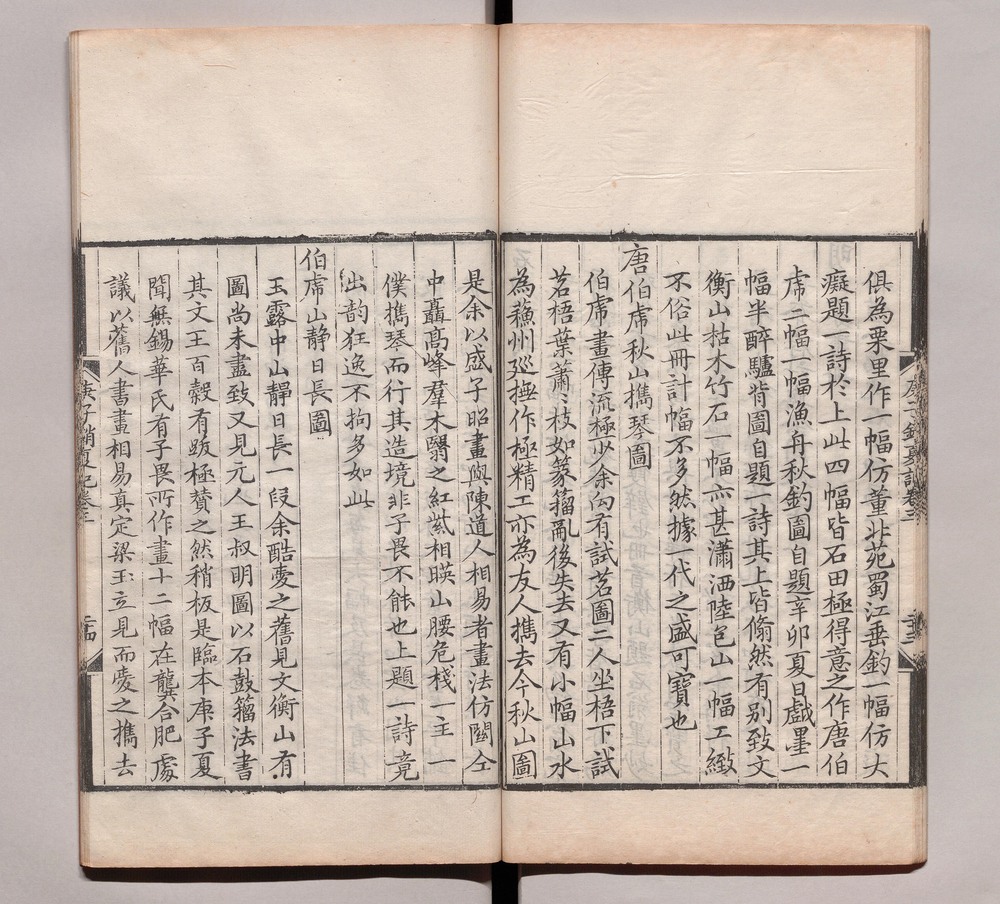 俱為栗里作一幅仿董北苑蜀江垂釣一幅仿大
癡題一詩於上此四幅皆石田極得意之作唐伯
虎二幅一幅漁舟秋釣圖自題辛卯夏日戲墨一
幅半醉驢背圖自題一詩其上皆翛然有別致文
衡山枯木竹石一幅亦甚瀟洒陸包山一幅工緻
不俗此冊計幅不多然據一代之盛可寶也
唐伯虎秋山攜琴圖
伯虎畫傳流極少余向有試茗圖二人坐梧下試
茗梧葉蕭〻枝如篆籀亂後失去又有小幅山水
為蘓州廵撫作極精工亦為友人攜去今秋山圖
是余以盛子昭畫與陳道人相易者畫法仿關仝
中矗高峰羣木翳之紅紫相暎山腰危棧一主一
僕攜琴而行其造境非子畏不能也上題一詩竟
出韵狂逸不拘多如此
伯虎山静日長圖
玉露中山靜日長一段余酷愛之舊見文衡山有
圖尚未盡致又見元人王叔明圖以石鼓籀法書
其文王百穀有跋極贊之然稍板是臨本庚子夏
聞無錫華氏有子畏所作畫十二幅在龔合肥處
議以舊人書畫相易真定梁玉立見而愛之攜去
庚子銷夏記卷三